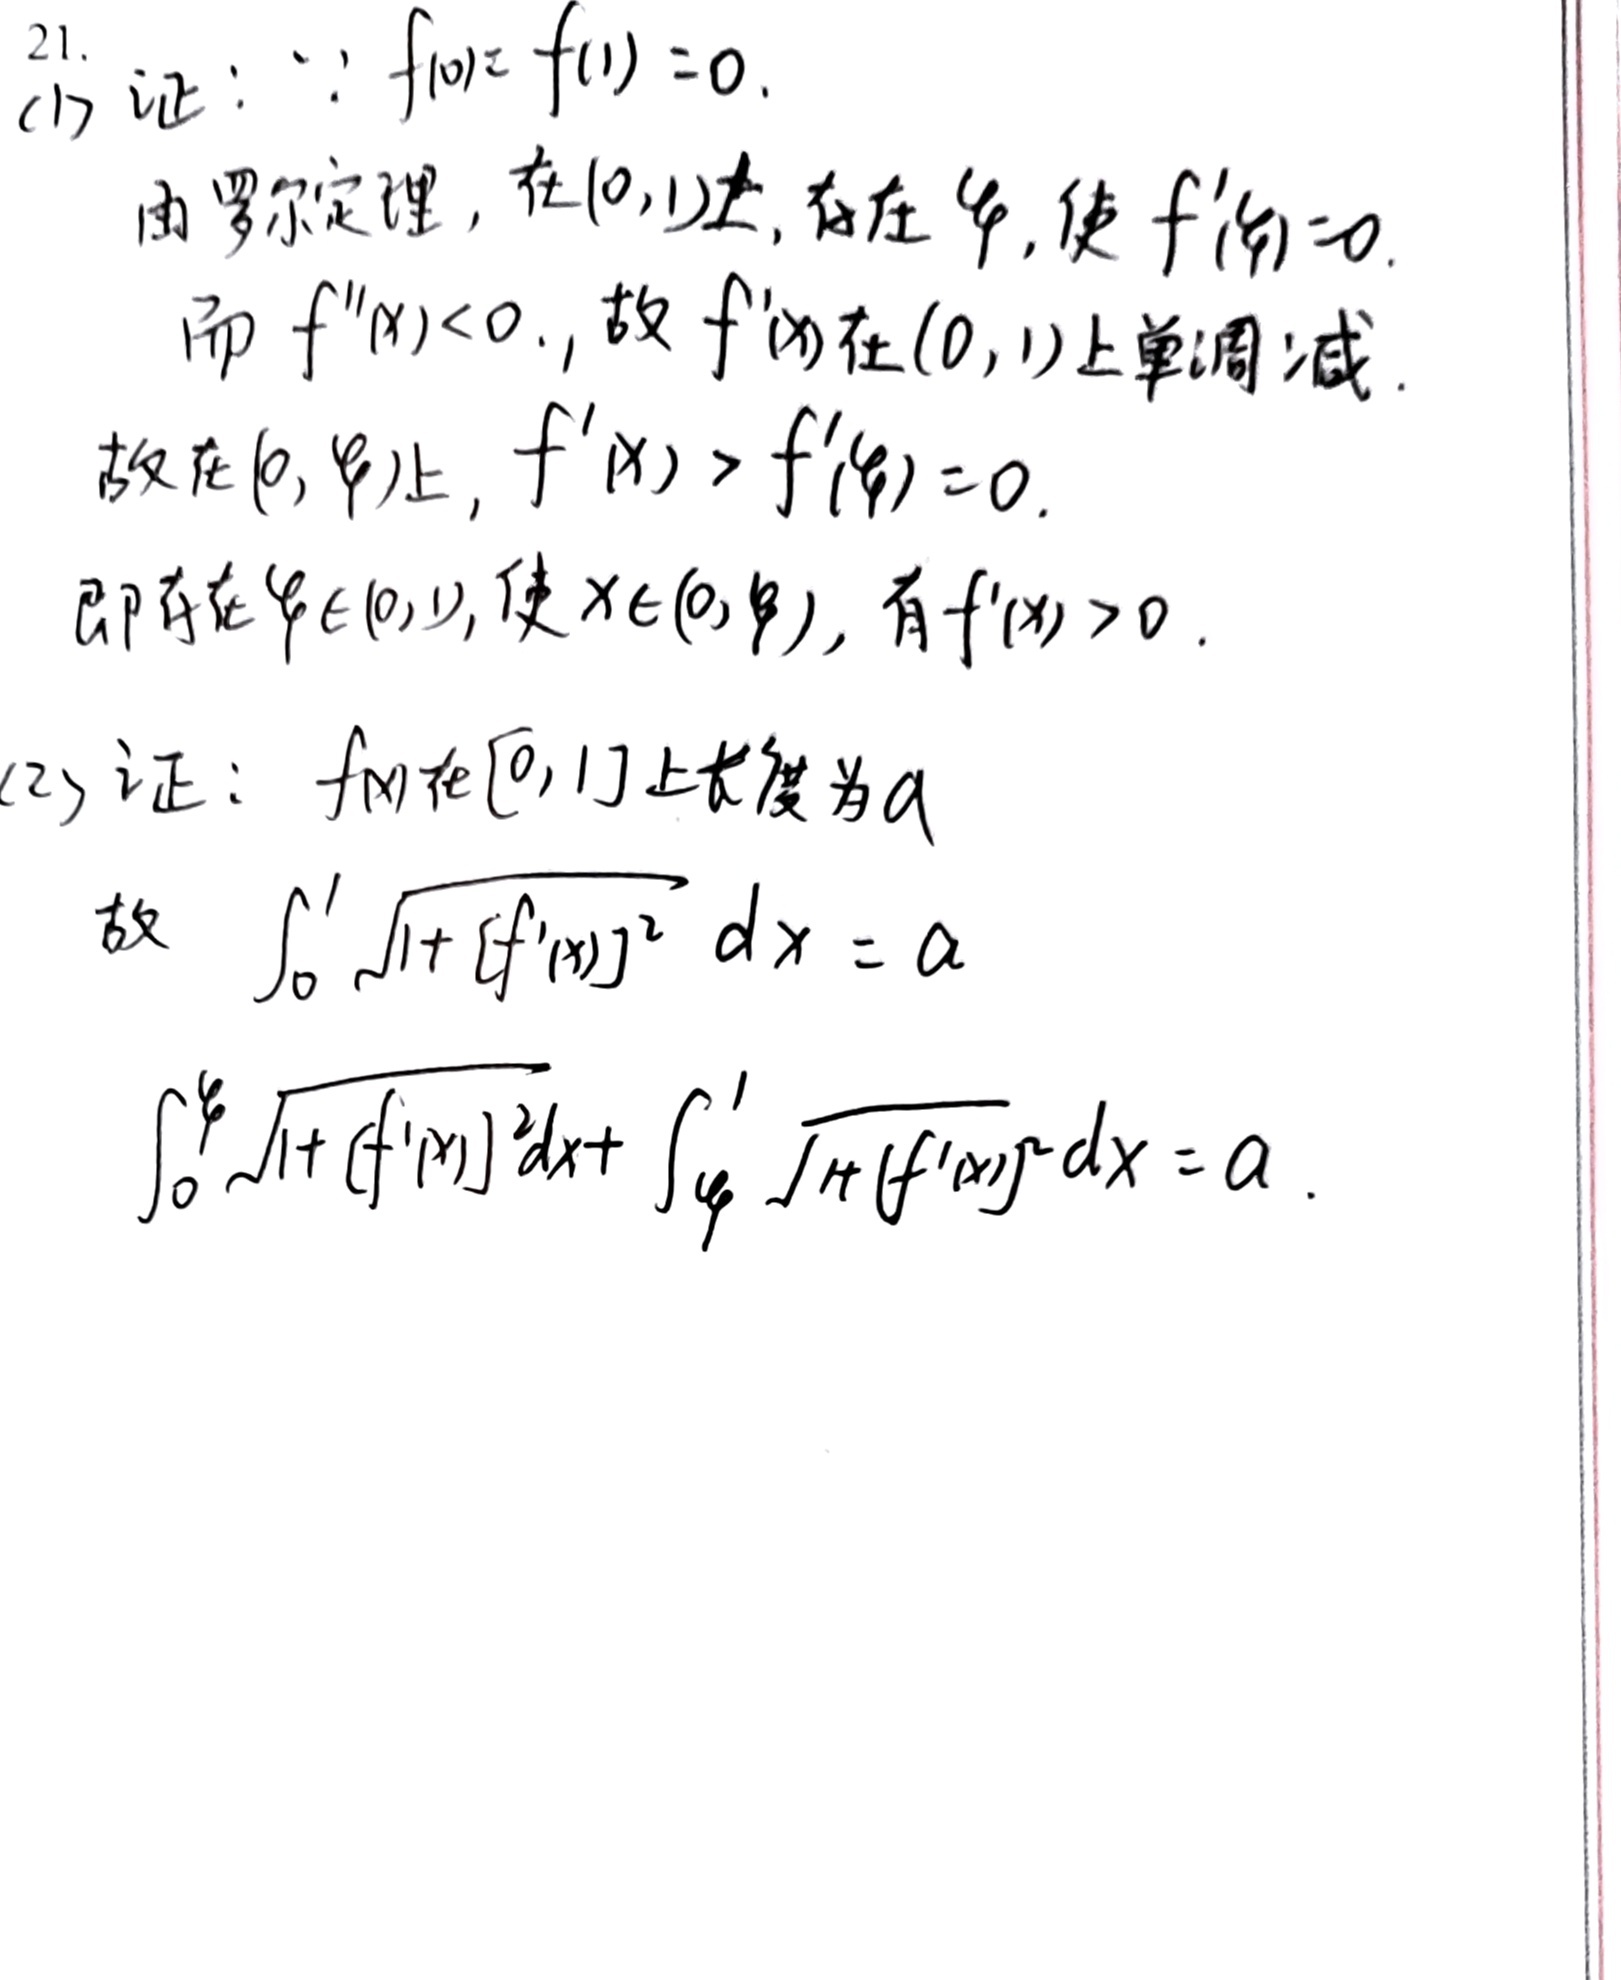 21.
(1) 证：∵ f(0)=f(1)=0.
由罗尔定理，在(0,1)上，存在φ，使f'(φ)=0.
而 f''(x)<0.，故 f'(x)在(0,1)上单调减.
故在(0,φ)上，f'(x)>f'(φ)=0.
即存在φ∈(0,1)，使x∈(0,φ)，有f'(x)>0.
(2) 证：f(x)在[0,1]上长度为a
故 ∫₀¹ √(1+[f'(x)]²) dx = a
∫₀^φ √(1+[f'(x)]²) dx + ∫_φ^1 √(1+[f'(x)]²) dx = a.